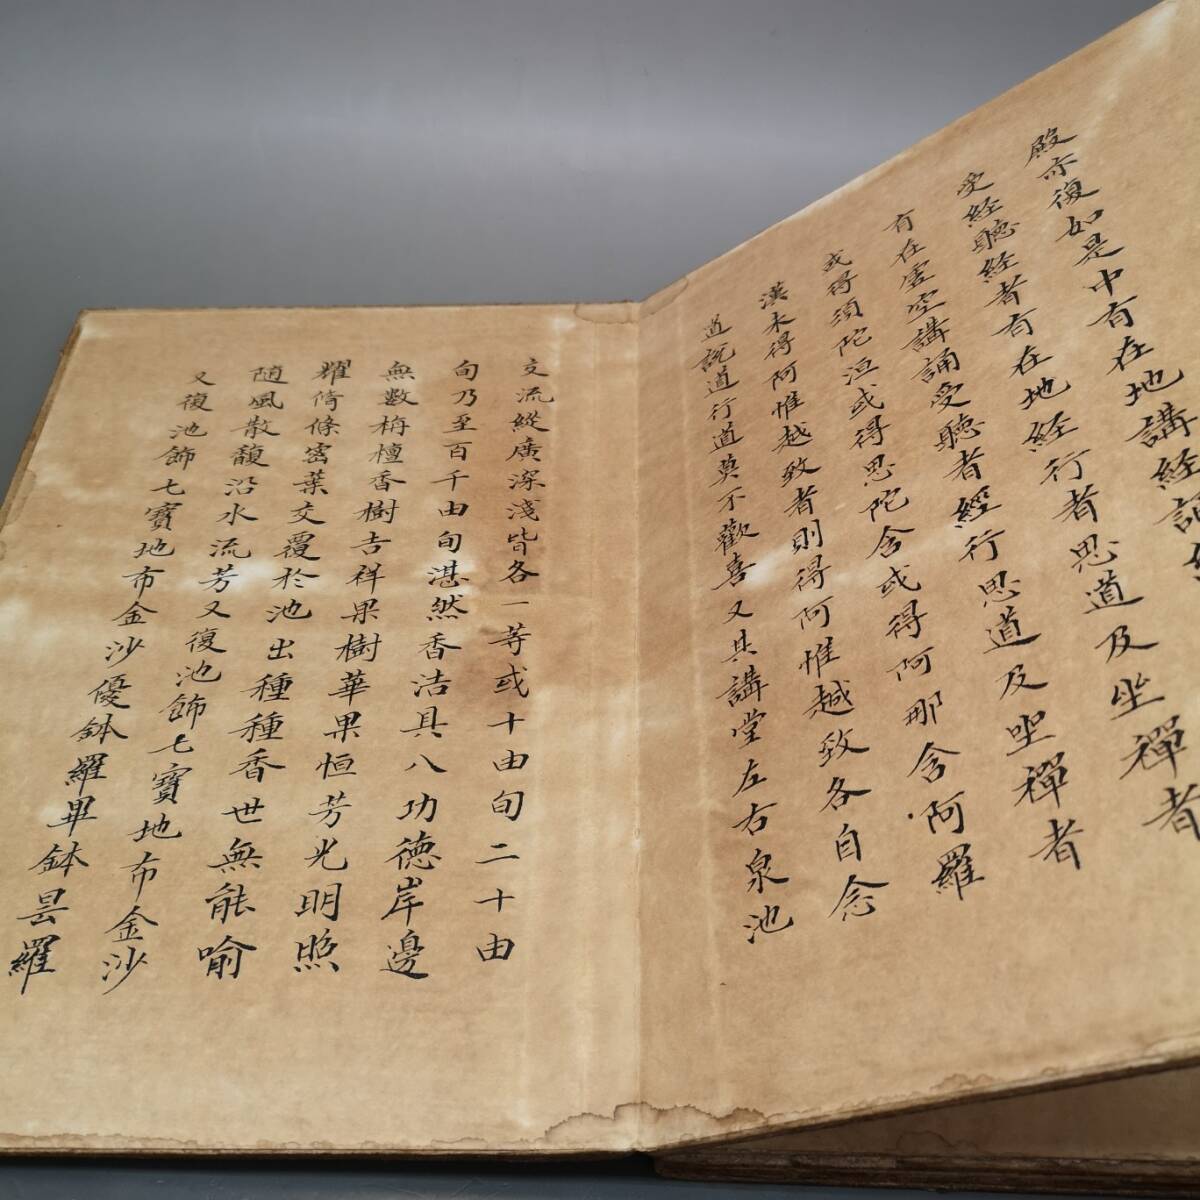 殿亦復如是中有在地講經誦經
受経聽経者有在地経行者思道及坐禪者
有在虛空講誦受聽者經行思道及坐禪者
或得須陀洹或得思陀含或得阿那含阿羅
漢未得阿惟越致者則得阿惟越致各自念
道說道行道莫不歡喜又其講堂左右泉池
交流縱廣深淺皆各一等或十由旬二十由
旬乃至百千由旬湛然香洁具八功德岸邊
無數栴檀香樹吉祥果樹華果恒芳光明照
耀脩條密葉交覆於池出種種香世無能喻
随風散馥沿水流芳又復池飾七寶地布金沙
又復池飾七寶地布金沙優鉢羅畢鉢曇羅